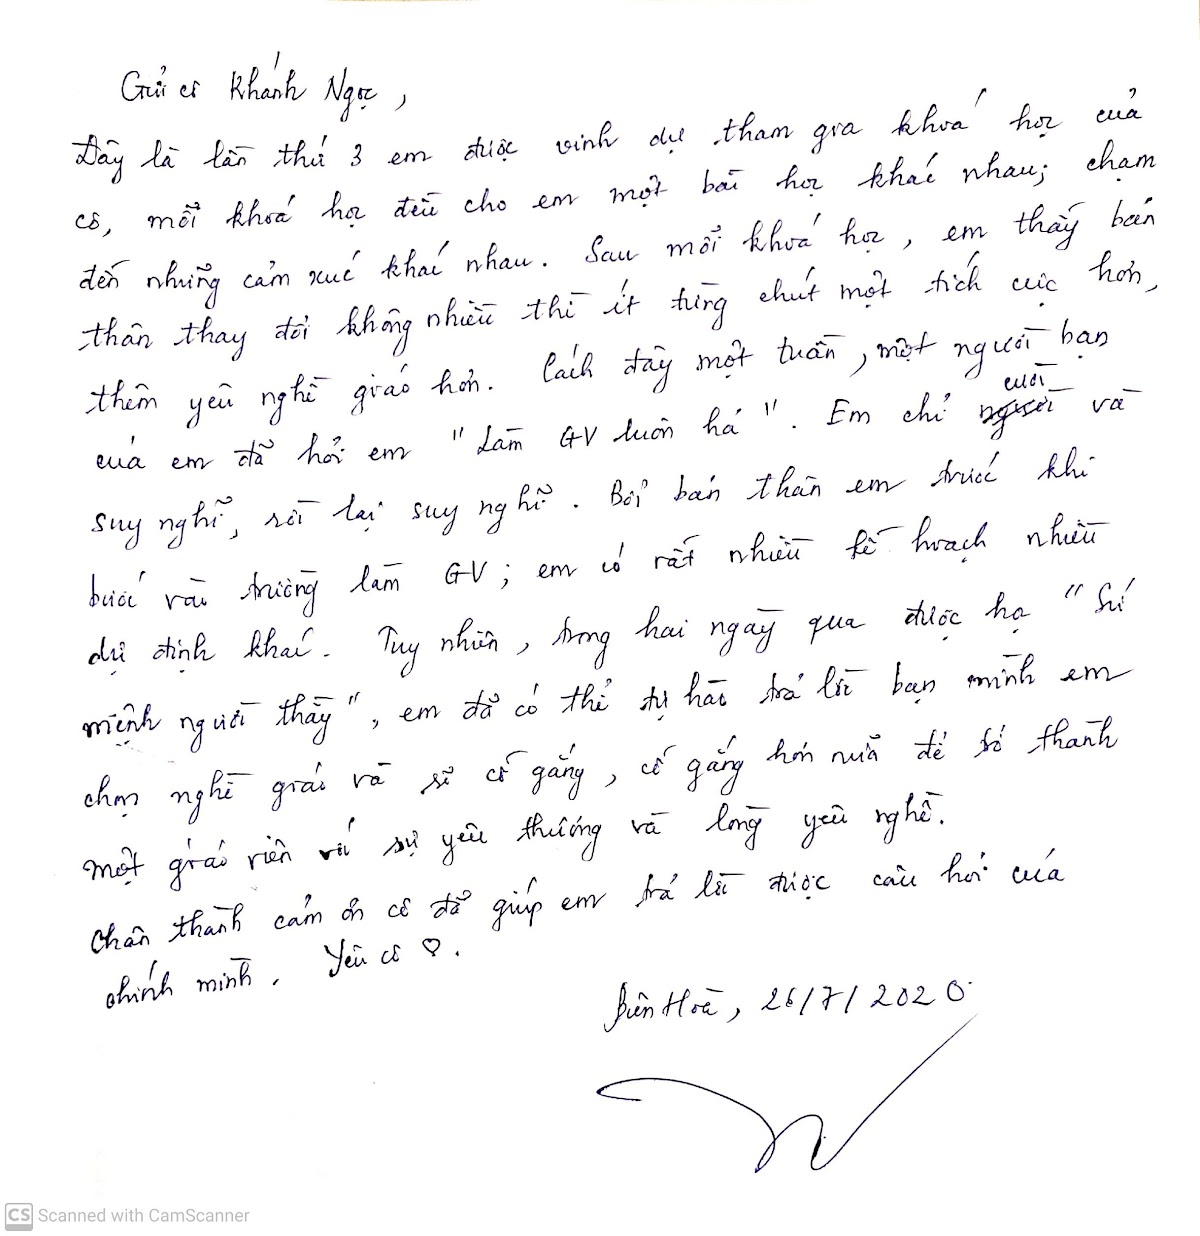 Gửi cô Khánh Ngọc,
Đây là lần thứ 3 em được vinh dự tham gia khoá học của
cô, mỗi khoá học đều cho em một bài học khác nhau; chạm
đến những cảm xúc khác nhau. Sau mỗi khoá học, em thấy bản
thân thay đổi không nhiều thì ít từng chút một tích cực hơn,
thêm yêu nghề giáo hơn. Cách đây một tuần, một người bạn
của em đã hỏi em "Làm GV luôn hả". Em chỉ cười và
suy nghĩ, rồi lại suy nghĩ. Bởi bản thân em trước khi
bước vào trường làm GV; em có rất nhiều kế hoạch nhiều
dự định khác. Tuy nhiên, trong hai ngày qua được học "Sứ
mệnh người thầy", em đã có thể tự hào trả lời bạn mình em
chọn nghề giáo và sẽ cố gắng, cố gắng hơn nữa để trở thành
một giáo viên với sự yêu thương và lòng yêu nghề.
Chân thành cảm ơn cô đã giúp em trả lời được câu hỏi của
chính mình. Yêu cô ♡.
Biên Hoà, 26/7/2020.
CS Scanned with CamScanner